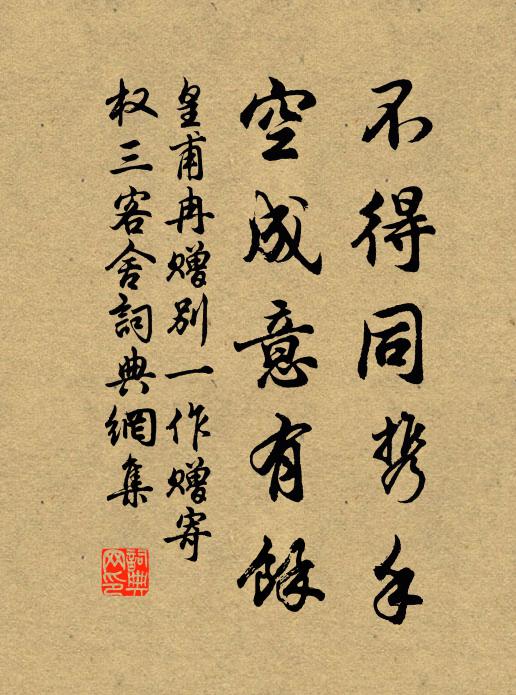 不得同携手
空成意有餘
皇甫冉赠别一作赠寄
权三客舍詞典網集
詞典网印